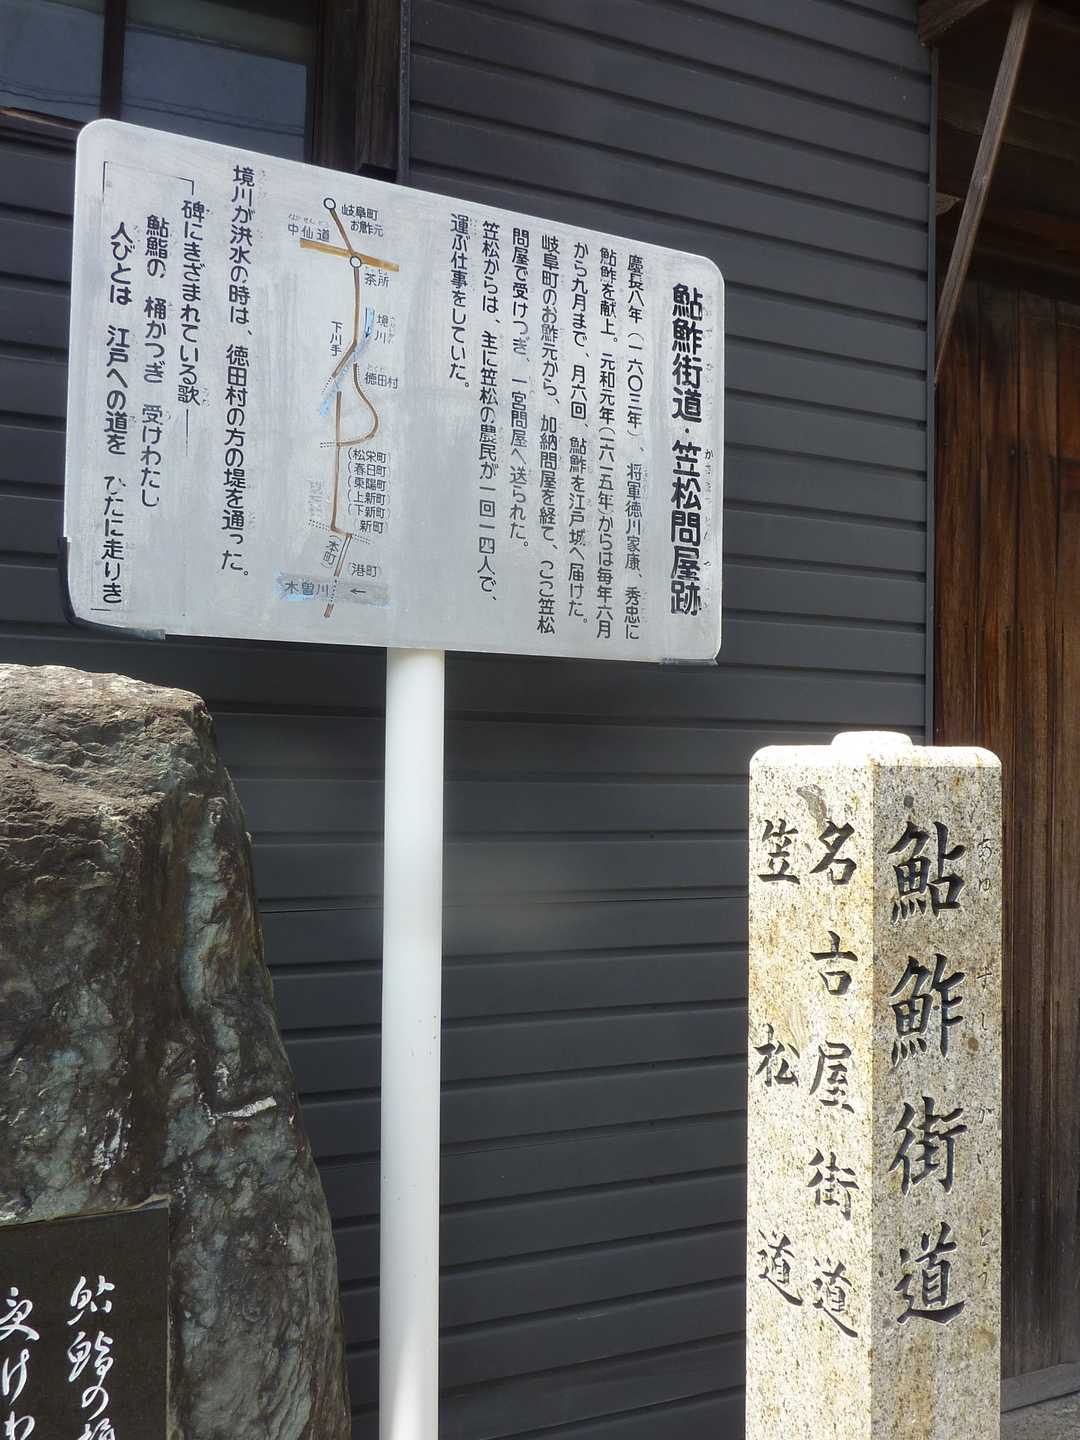 鮎鮓街道・笠松問屋跡
慶長八年（一六〇三年）、将軍徳川家康、秀忠に
鮎鮓を献上。元和元年（一六一五年）からは毎年六月
から九月まで、月六回、鮎鮓を江戸城へ届けた。
岐阜町のお鮓元から、加納問屋を経て、ここ笠松
問屋で受けつぎ、一宮問屋へ送られた。
笠松からは、主に笠松の農民が一回一四人で、
運ぶ仕事をしていた。
岐阜町
お鮓元
中仙道
茶所
境川
下川手
徳田村
（松栄町）
（春日町）
（東陽町）
（上新町）
（下新町）
（新町）
（本町）
（港町）
木曽川 ←
境川が洪水の時は、徳田村の方の堤を通った。
碑にきざまれている歌――
鮎鮨の 桶かつぎ 受けわたし
人びとは 江戸への道を ひたに走りき
鮎鮓街道
あゆずしかいどう
名古屋街道
笠松道
鮎鮨の
受けわ